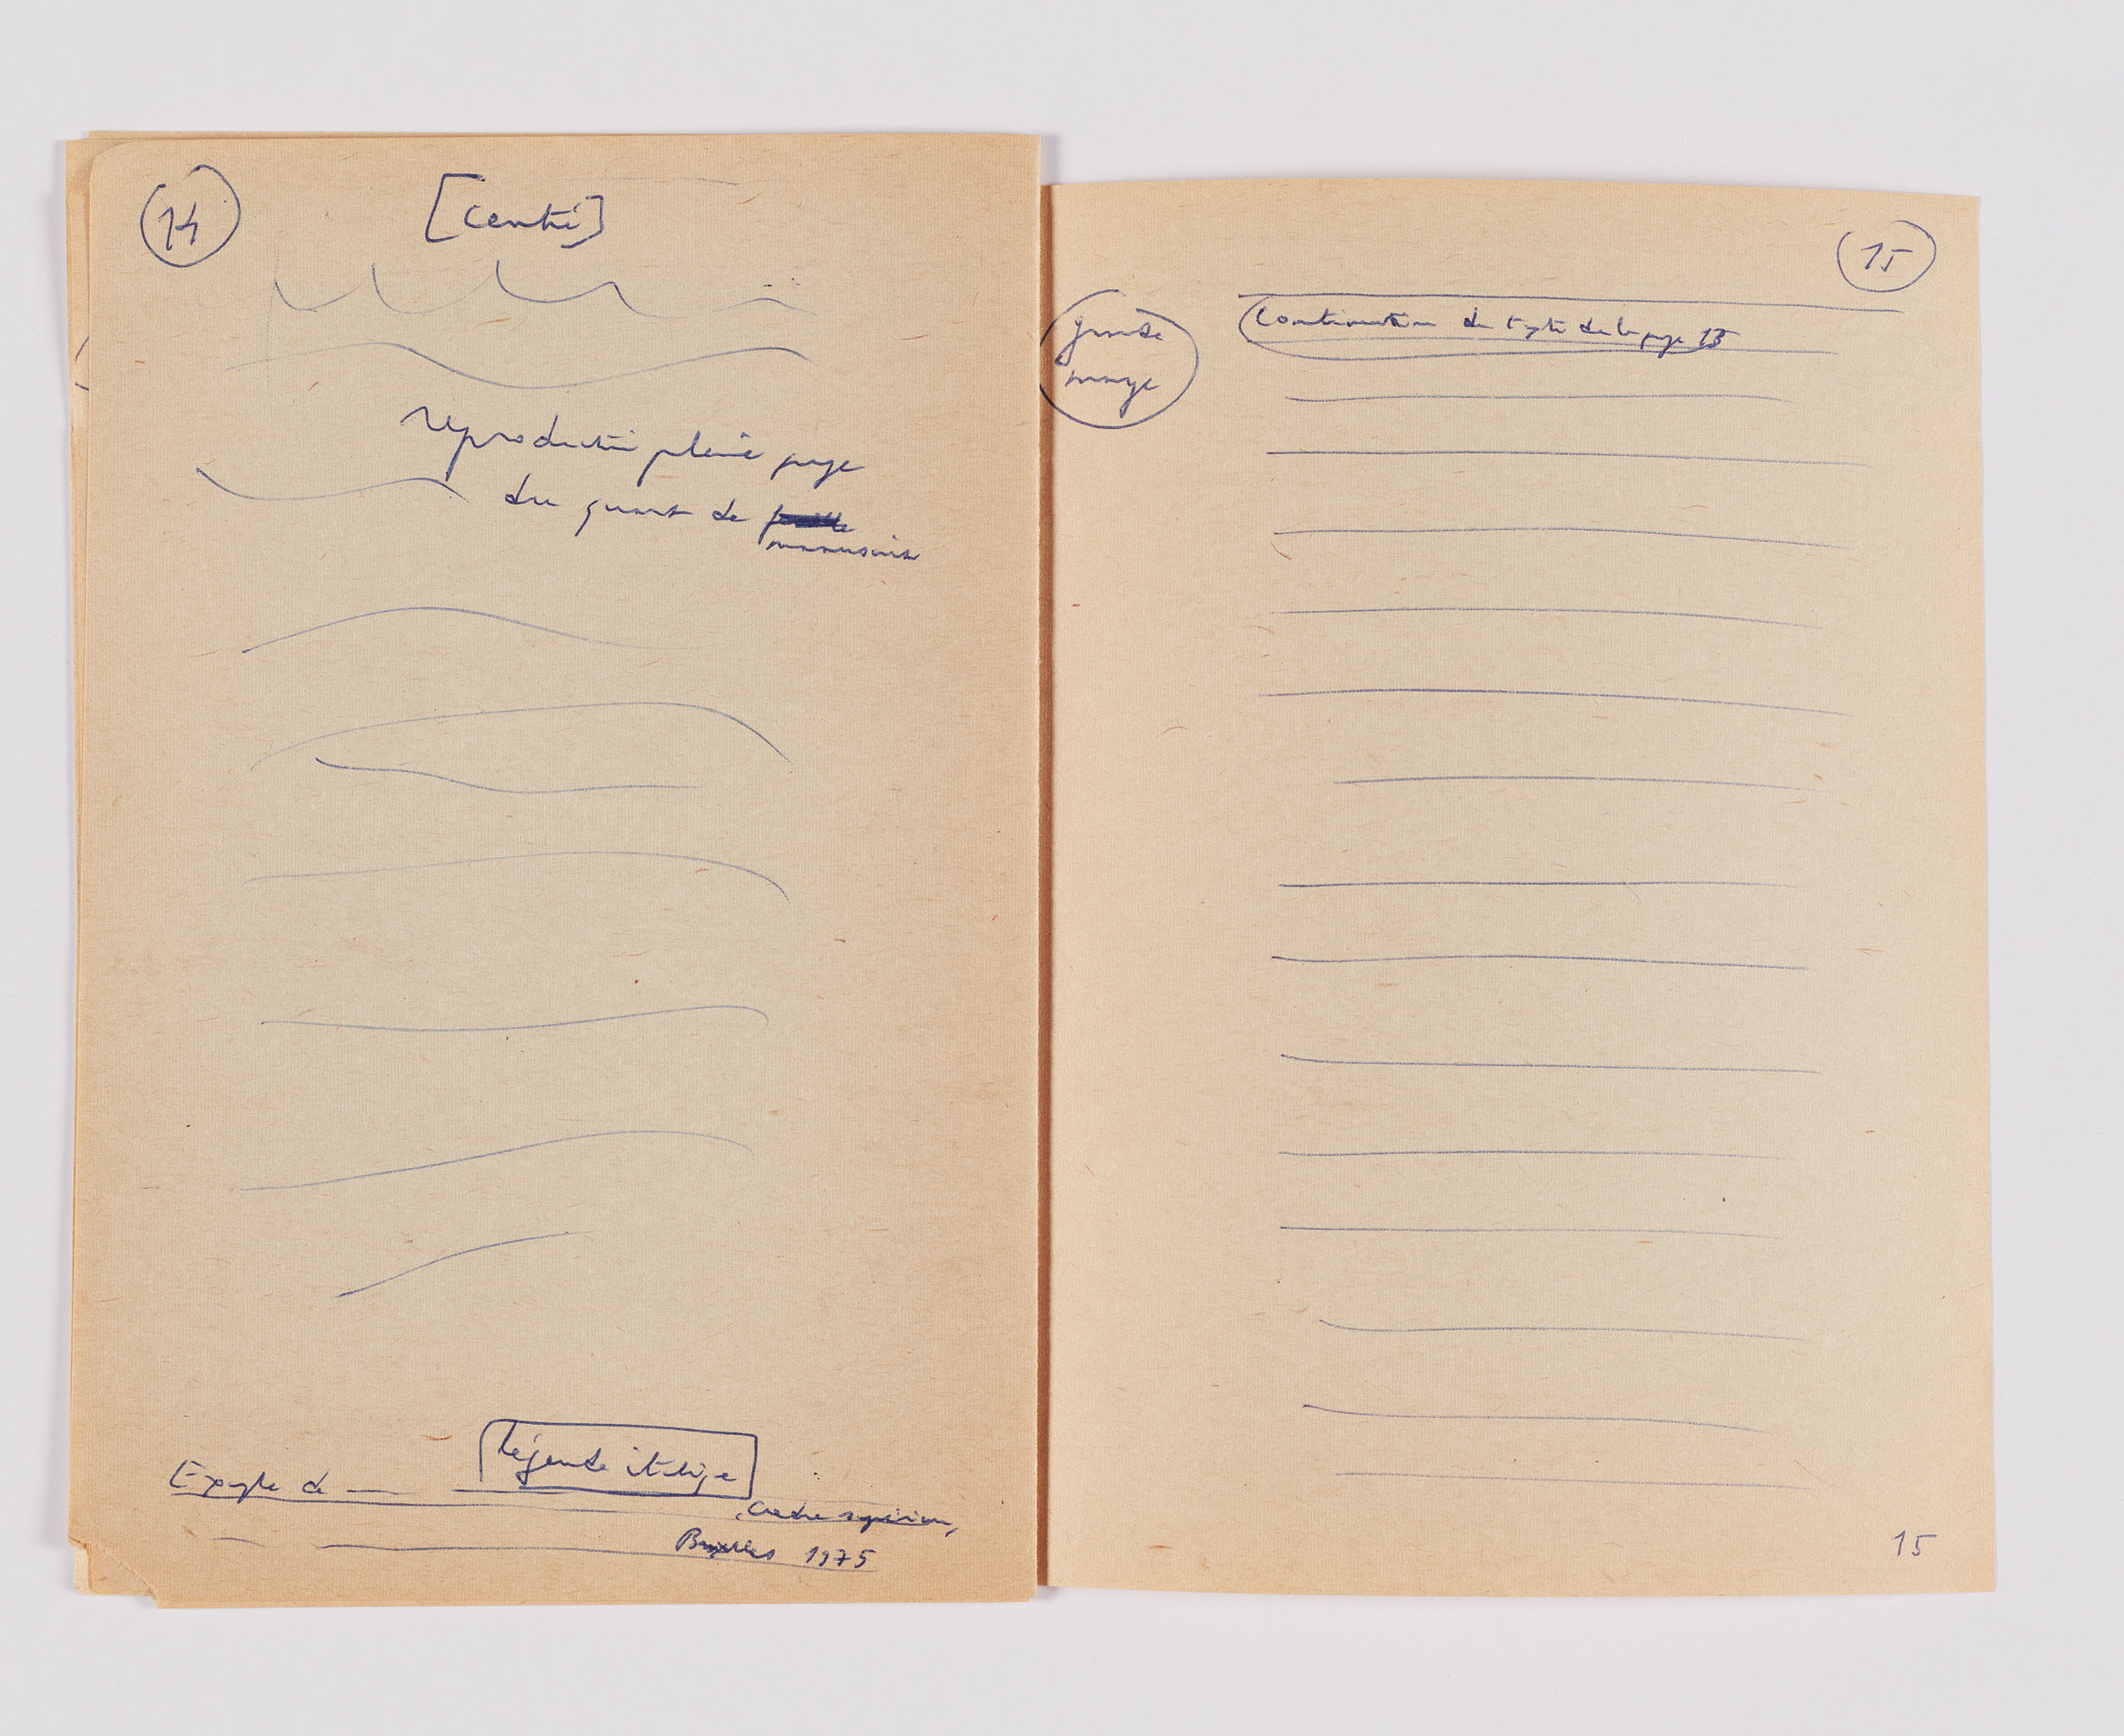 14
[centré]
reproduction pleine page
du quart de
manuscrit
Légende italique
Exemple de
Bruxelles 1975
15
grande
marge
Continuation du texte de la page 13
15